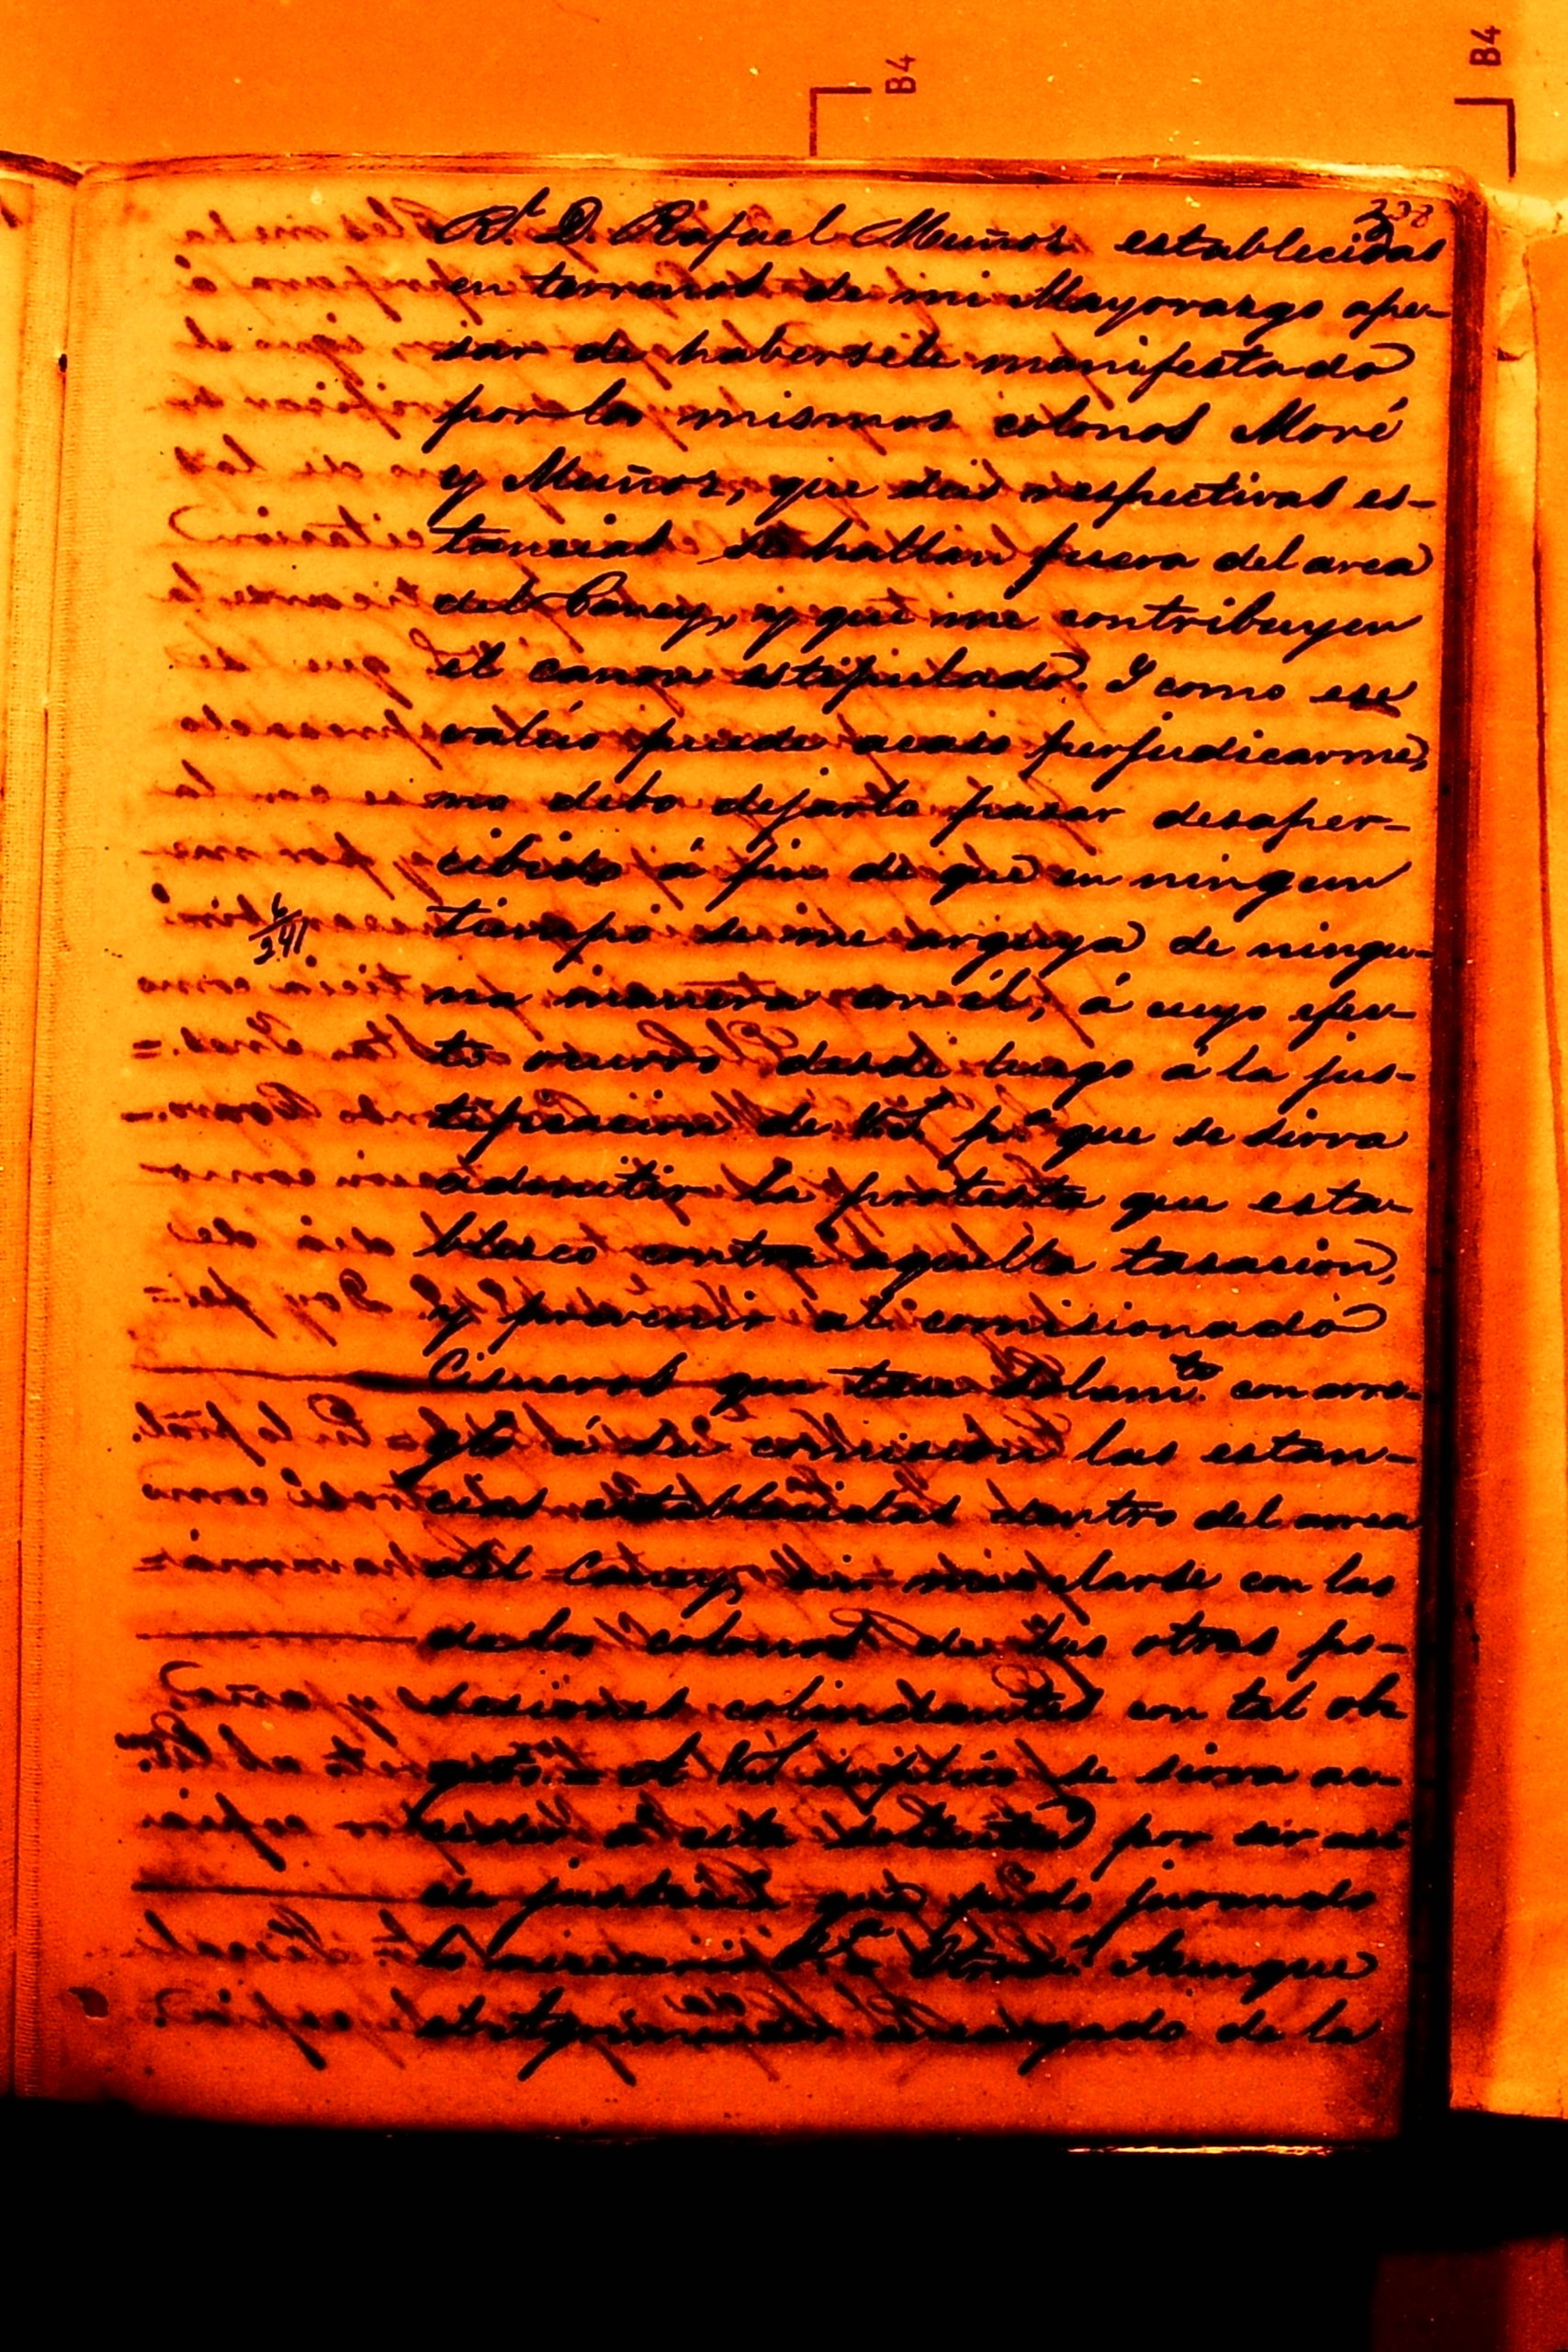 B4
B4
338
D. Rafael Muñoz establecidas
en terrenos de mi Mayorazgo ape-
sar de habersele manifestado
por los mismos colonos Moré
y Muñoz, que sus respectivas es-
tancias se hallan fuera del area
del Caney, y que me contribuyen
el canon estipulado. Y como ese
valúo puede acaso perjudicarme,
no debo dejarlo pasar desaper-
cibido á fin de que en ningun
tiempo se me arguya de ningu-
na manera con él; á cuyo efec-
to ocurro desde luego á la jus-
tificacion de V.S. pª que se sirva
admitir la protesta que esta-
blesco contra aquella tasacion,
y prevenir al comisionado
Cisneros que tase solamto. con arre-
glo á su comision las estan-
cias establecidas dentro del area
del Caney, sin mesclarse con las
de los colonos de las otras po-
sesiones colindantes con tal ob-
geto. = A V.S. suplico se sirva ac-
ceder á esta solicitud por ser así
de justicia que pido jurando
lo necesario &ª Otrosí: Aunque
de la